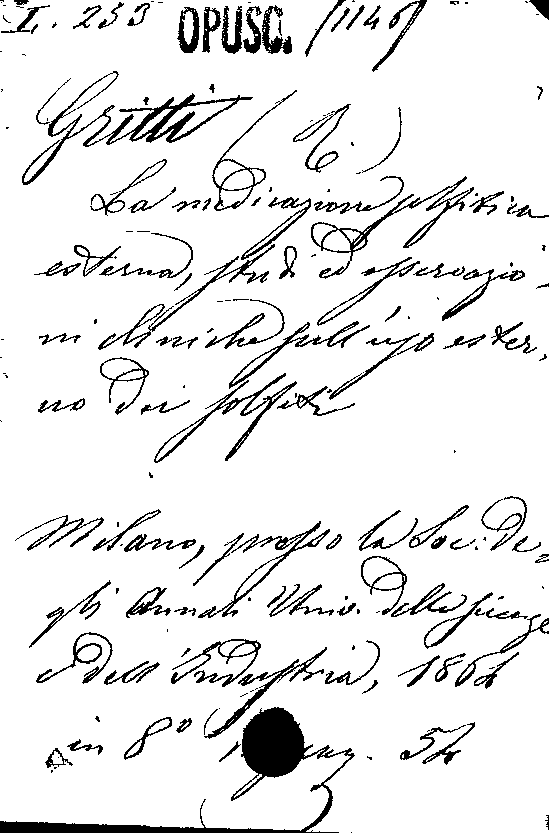 I. 253 OPUSC. (1146)
Gritti (R.)
La medicazione solfitica
esterna, studi ed osservazio-
ni cliniche sull'uso ester-
no dei solfiti
Milano, presso la Soc: De-
gli Annali Univ. delle scienze
e dell'Industria, 1864
in 8° pag. 54